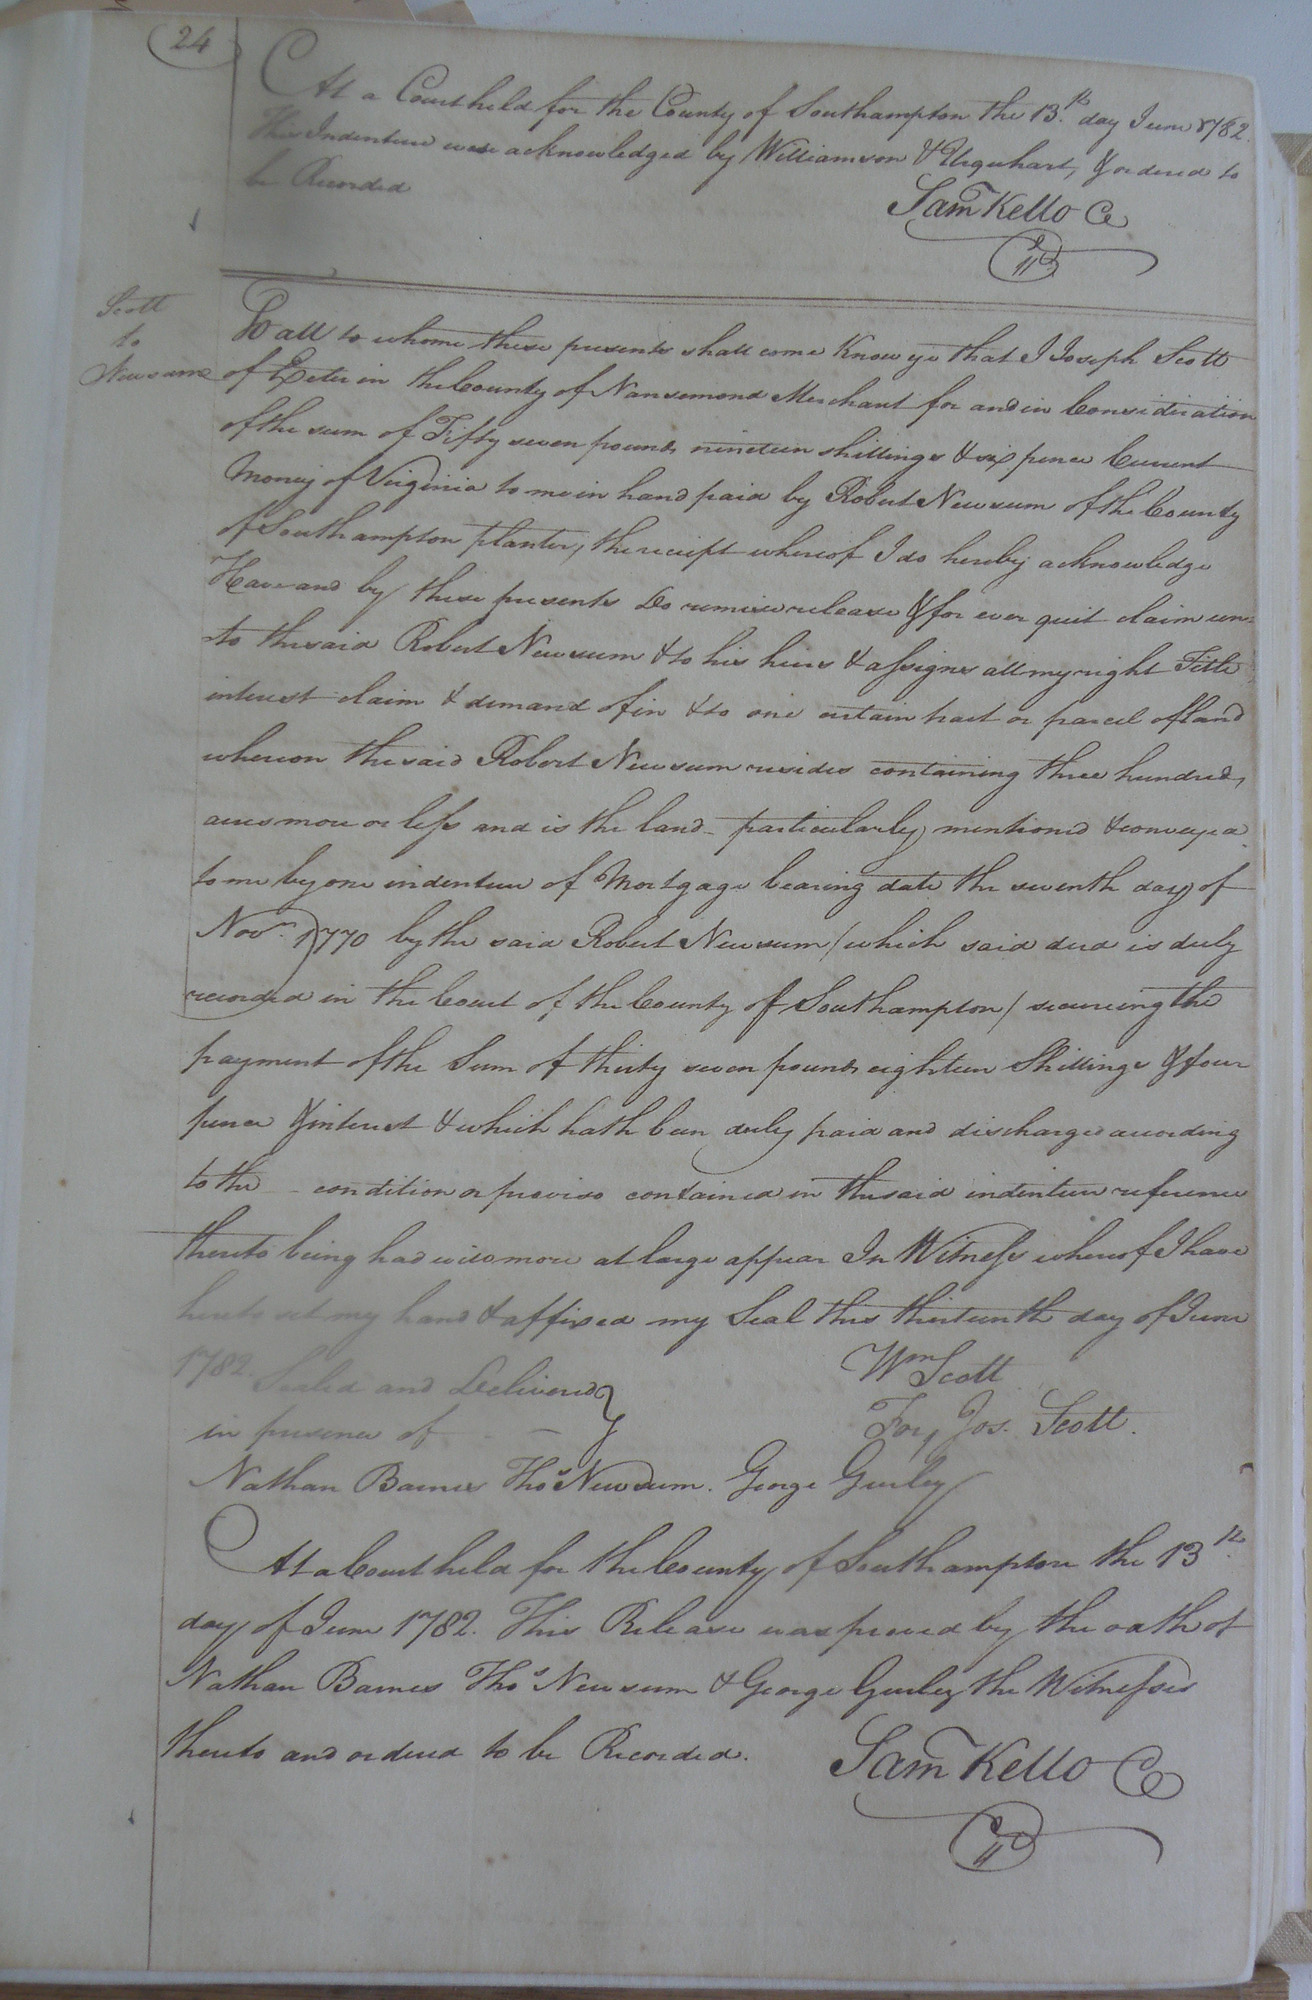 24
At a Court held for the County of Southampton the 13th day June 1782.
This Indenture was acknowledged by Williamson & Urquhart, & ordered to
be Recorded
Sam Kello Ce
Scott
to
Newsume
To all to whome these presents shall come Know ye that I Joseph Scott
of Exeter in the County of Nansemond Merchant for and in Consideration
of the sum of Fifty seven pounds nineteen shillings & six pence Current
Money of Virginia to me in hand paid by Robert Newsum of the County
of Southampton planter, the receipt whereof I do hereby acknowledge
Have and by these presents Do remise release & for ever quit claim un=
to the said Robert Newsum & to his heirs & assigns all my right Title
interest claim & demand of in & to one certain tract or parcel of land
whereon the said Robert Newsum resides containing three hundred,
acres more or less and is the land particularly mentioned & conveyed
to me by one indenture of Mortgage bearing date the seventh day of
Novr. 1770 by the said Robert Newsum / which said deed is duly
recorded in the Court of the County of Southampton / secureing the
payment of the Sum of thirty seven pounds eighteen Shillings & four
pence & interest & which hath been duly paid and discharged according
to the condition or proviso contained in the said indenture reference
thereto being had will more at large appear In Witness whereof I have
hereto set my hand & affixed my Seal this thirteenth day of June
1782.
Sealed and Delivered
in presence of
Wm Scott
For Jos. Scott.
Nathan Barnes Thos Newsum. George Gurley
At a Court held for the County of Southampton the 13th
day of June 1782. This Release was proved by the oath of
Nathan Barnes Thos Newsum & George Gurley the Witnesses
thereto and ordered to be Recorded.
Sam Kello Ce